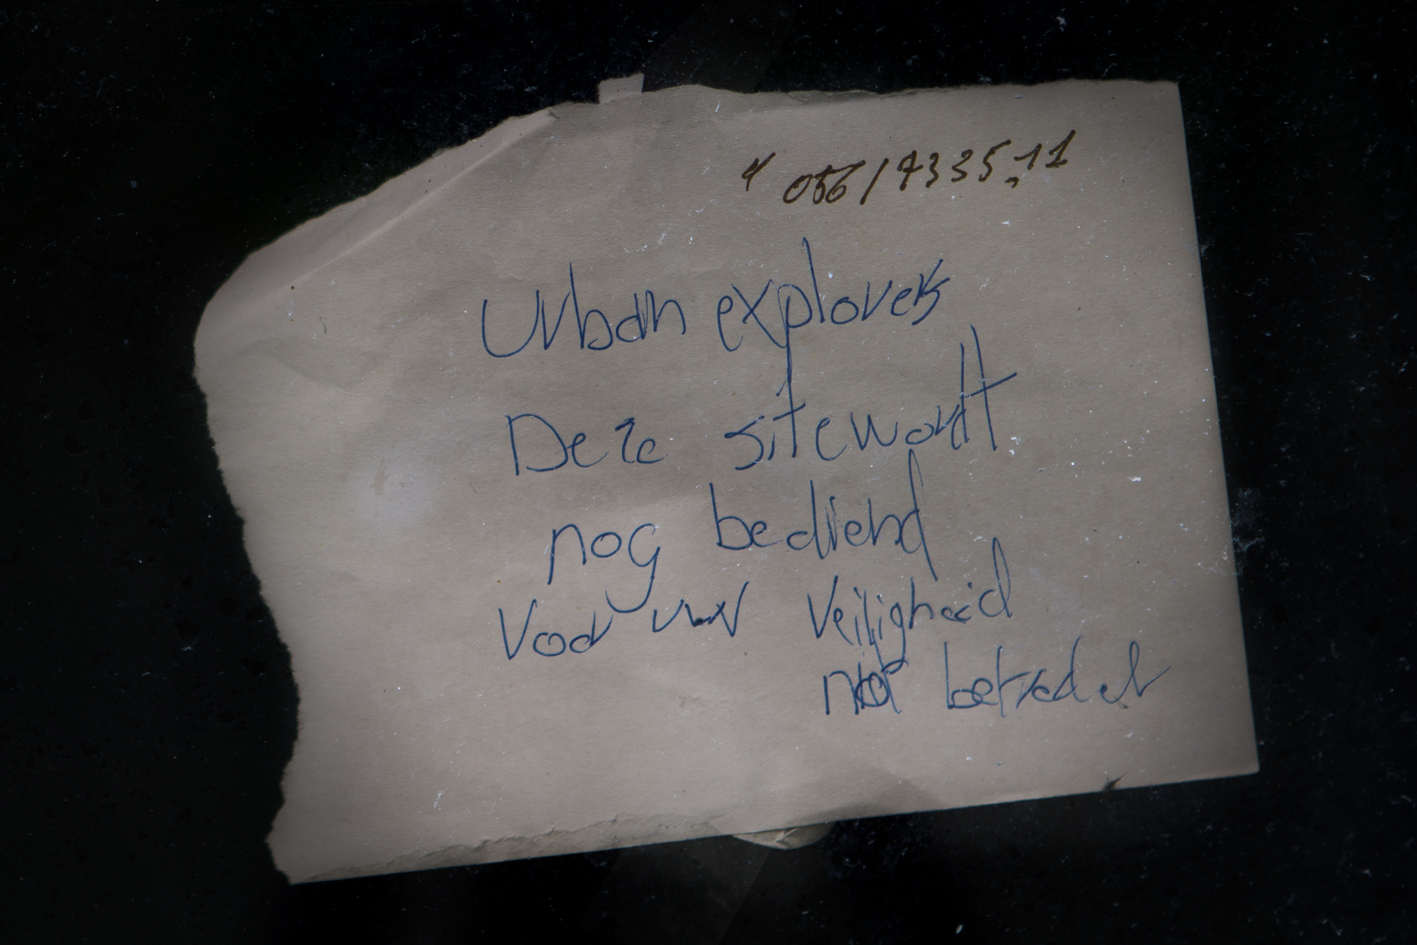 056/7335.11
Urban explorers
Deze site wordt
nog bediend
Voor uw Veiligheid
niet betreden